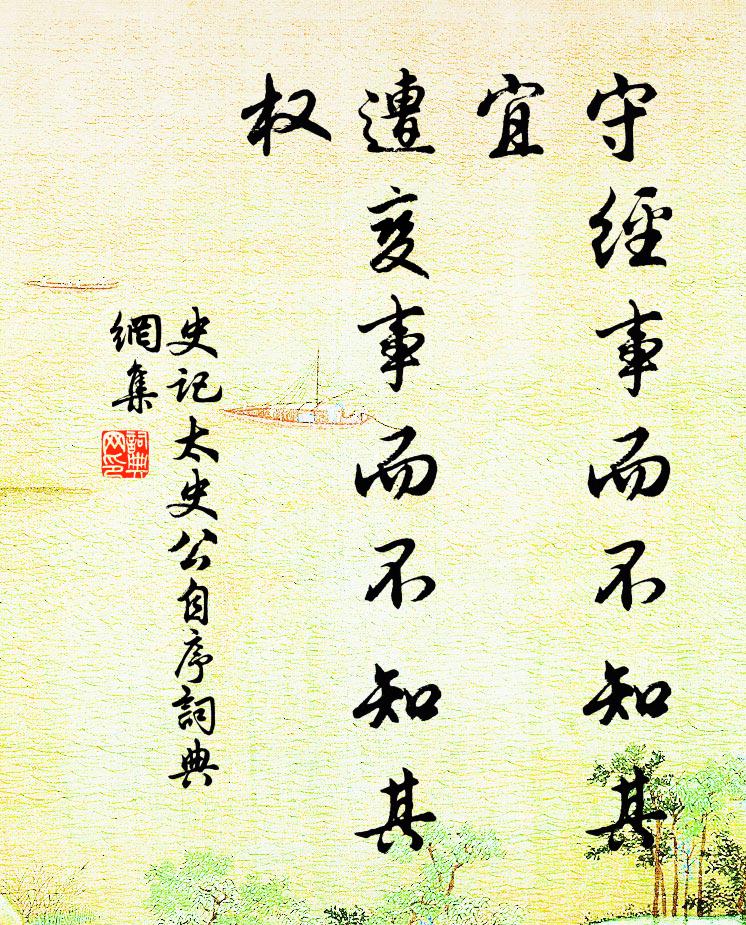 守經事而不知其
宜
遭变事而不知其
权
史記太史公自序詞典
網集
詞典
网印